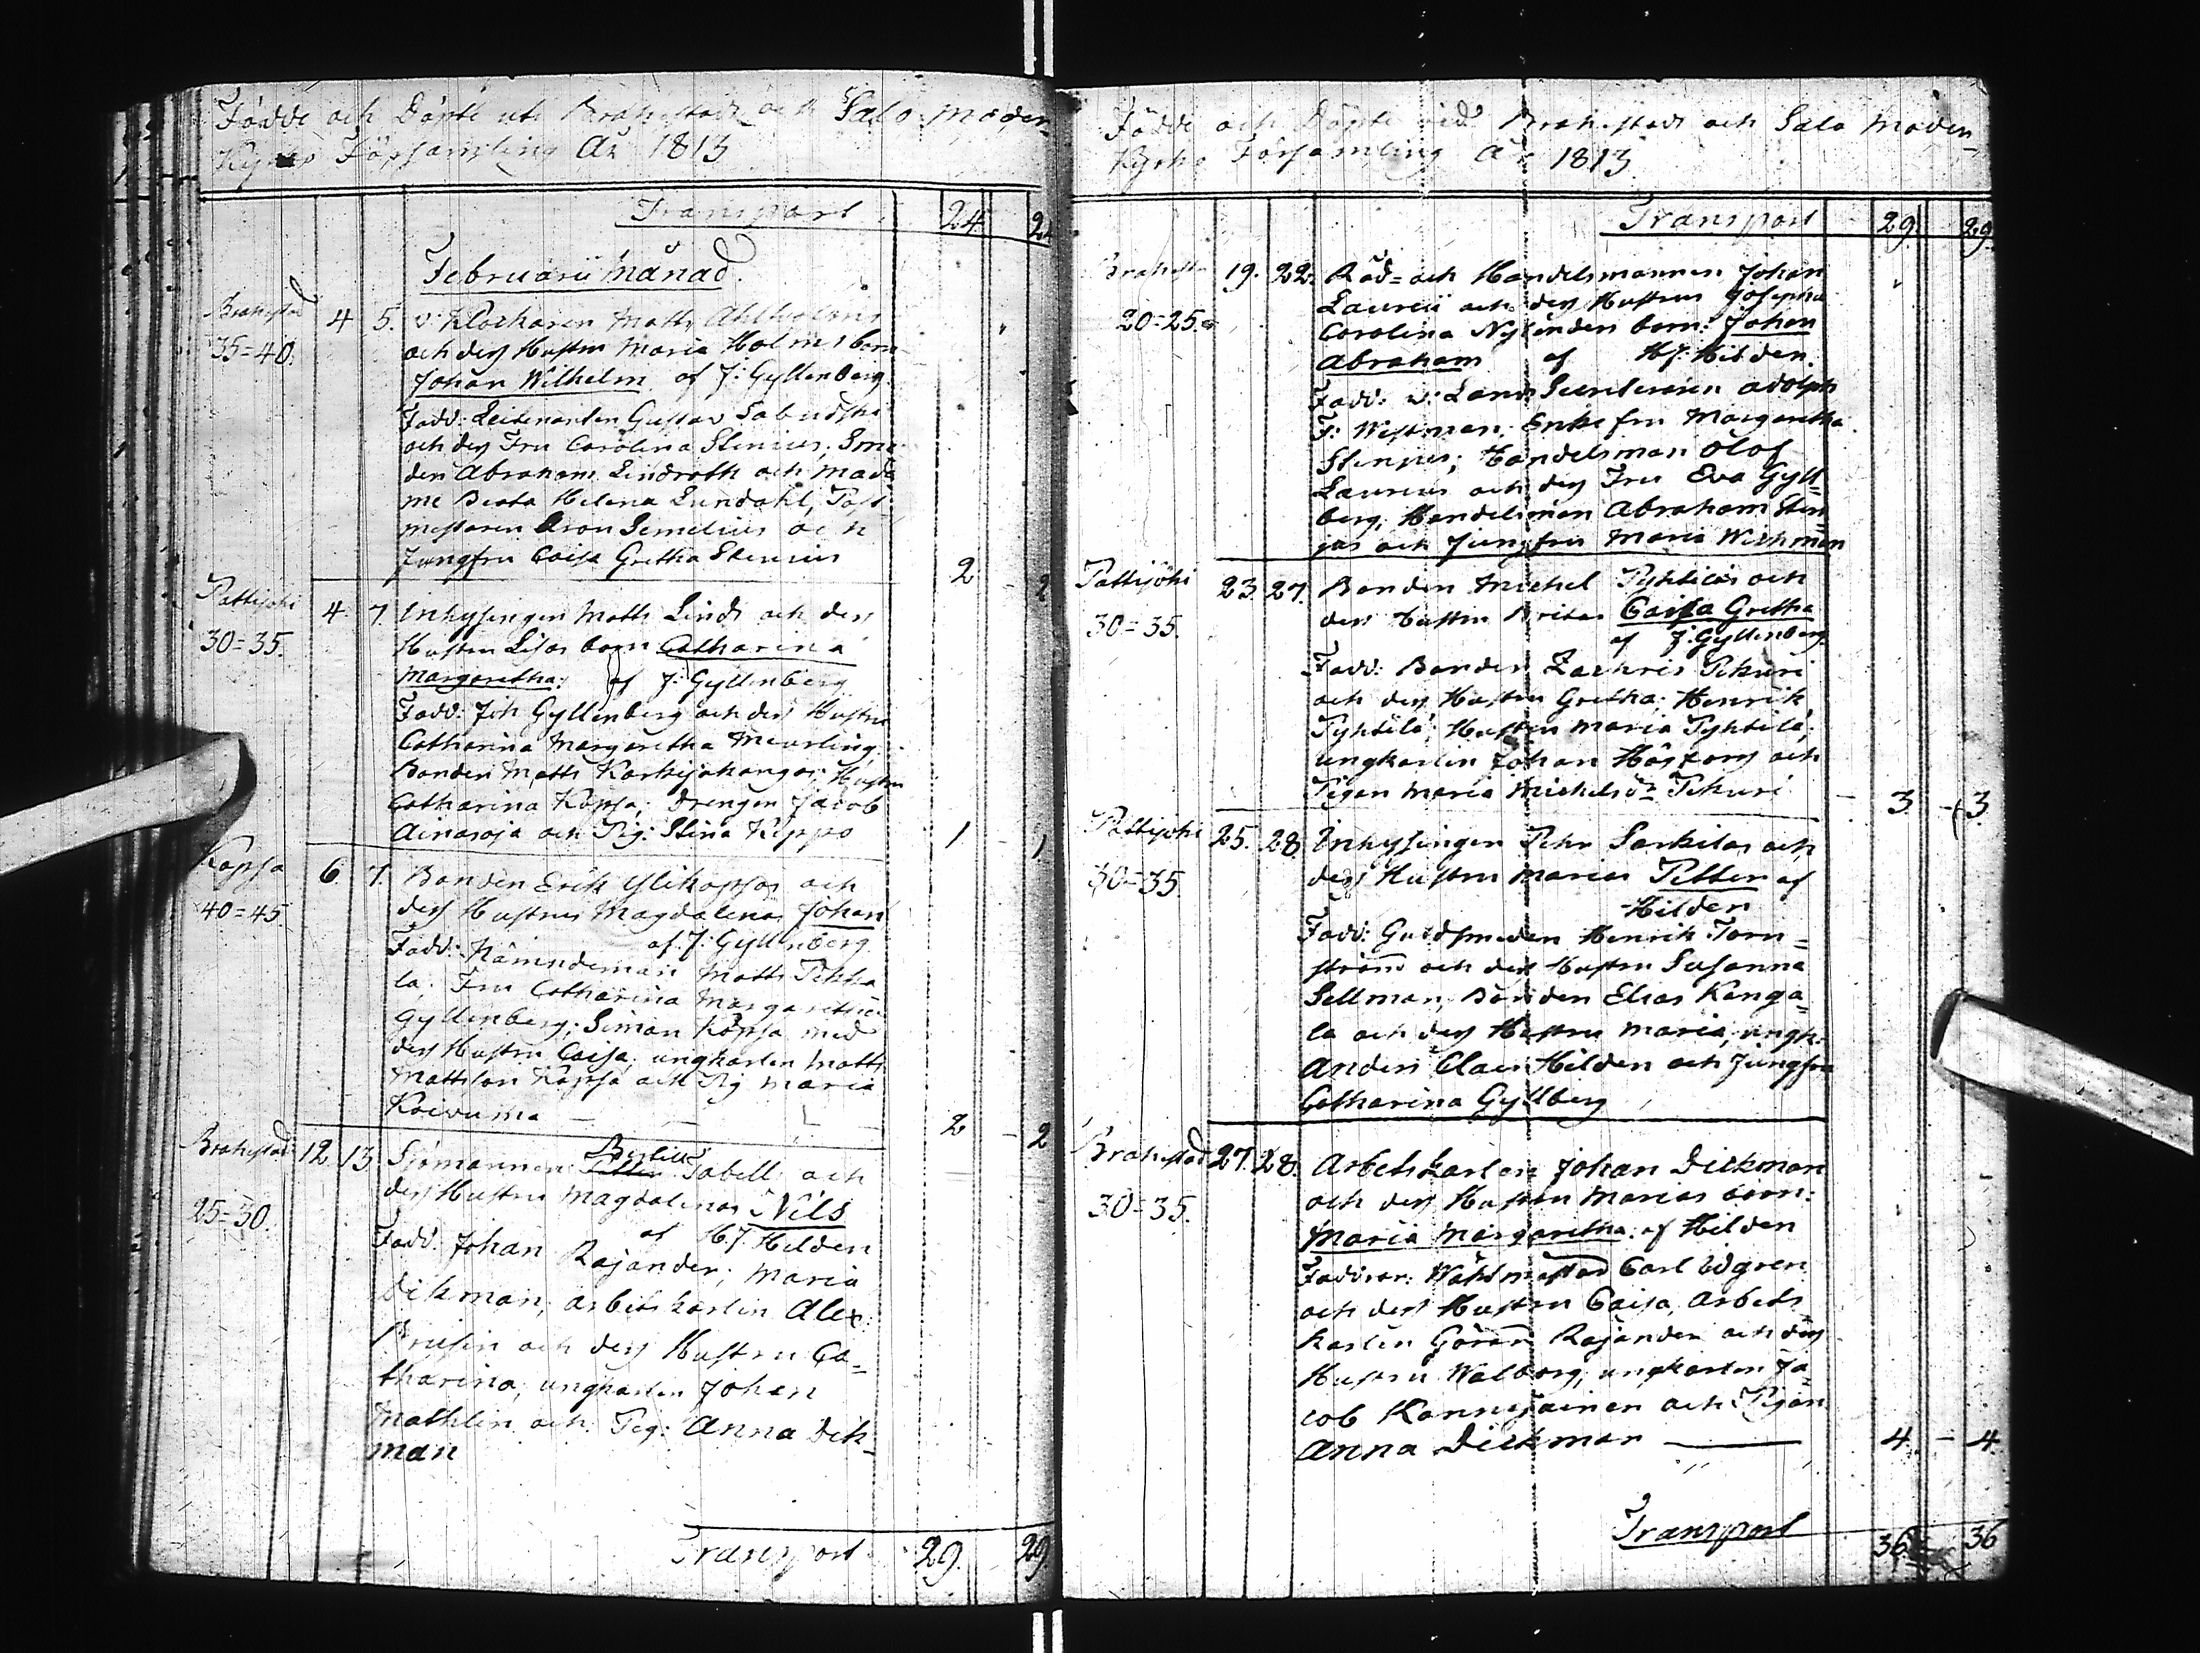 Födde och Döpte uti Brahestads och Salo Moder-
Kyrko Församling År 1813
Transport 24 24
Februarii Månad.
Brahestad 4 5. v: Klockaren Matts Ahlholms
35=40. och dess Hustru Maria Holms barn
Johan Wilhelm af J: Gyllenberg
Fadd: Leitenanten Gustav
och dess Fru Carolina Stenius, Sme-
den Abraham Lindroth och Mada-
me Beata Helena Lundahl, Post
mestaren Aron Semelius och
Jungfru Caisa Gretha Stenius 2 2
Pattijoki 4. 7. Inhysingen Matts Linds och dess
30=35. Hustru Lisas barn Catharina
Margaretha: af J: Gyllenberg
Fadd: Joh Gyllenberg och dess Hustru
Catharina Margaretha Meurling
Bonden Matts Karhijakangas; Hustru
Catharina Kopsa; Drengen Jacob
Ainasoja och Pig: Stina Keppo 1 1
Kopsa 6. 7. Bonden Erik Ylikopsas och
40=45 dess Hustrus Magdalenas Johan
af J: Gyllenberg
Fadd: Nämndeman Matts Pehka
la, Fru Catharina Margaretha
Gyllenberg; Simon Kopsa med
dess Hustru Caisa, ungkarlen Matts
Mattsson Kopsa och Pig Maria
Koivuma 2 - 2
Brahestad 12 13 Sjömannen Tabell och
25=30. dess Hustru Magdalenas Nils
af H.J. Hilden
Fadd. Johan Rajander; Maria
Dikman, arbetskarlen Alex:
Brusin och dess Hustru Ca=
tharina, ungkarlen Johan
Mathlin och Pig: Anna Dik-
man
Transport 29. 29.
Födde och Döpte vid Brahestads och Salo Moder-
Kyrko Församling År 1813
Transport 29. 29.
Brahesta 19. 22. Råd= och Handelsmannen Johan
20=25. Laurei och dess Hustrus Josepha
Carolina Nylanders barn: Johan
Abraham af H.J: Hilden.
Fadd: v: Lands Secreteraren Adolph
F: Westman, Enke fru Margaretha
Stenius; Handelsman Olof
Laureus och dess Fru Eva Gyll=
berg, Handelsman Abraham Sten=
jus och Jungfru Maria Wichman
Pattijoki 23. 27. Bonden Michel Pyhtilas och
30=35. dess hustru Britas Caisa Gretha
af J: Gyllenberg.
Fadd: Bonden Zachris Pekuri
och dess Hustru Gretha, Henrik
Pyhtilä, Hustru Maria Pyhtilä,
ungkarlen Johan Högfors och
Pigan Maria Michelsdr Pekuri - 3 - 3.
Pattijoki 25. 28. Inhysingen Pehr Sarkilas och
30=35. dess Hustru Marias Petter af
Hilden
Fadd: Guldsmeden Henrik Torn=
ström och dess Hustru Susanna
Sellman, Bonden Elias Kanga=
la och dess Hustru Maria, ungk:
Anders Claes Hilden och Jungfru
Catharina Gyllberg
Brahestad 27. 28. Arbetskarlen Johan Dickman
30=35. och dess Hustru Marias barn:
Maria Margaretha: af Hilden
Faddrar: Waktmästar Carl Edgren
och dess Hustru Caisa, Arbets
karlen Göran Rajander och dess
Hustru Walborg, ungkarlen Ja=
cob Kannejainen och Pigan
Anna Dickman 4. - 4.
Transport 36 = 36